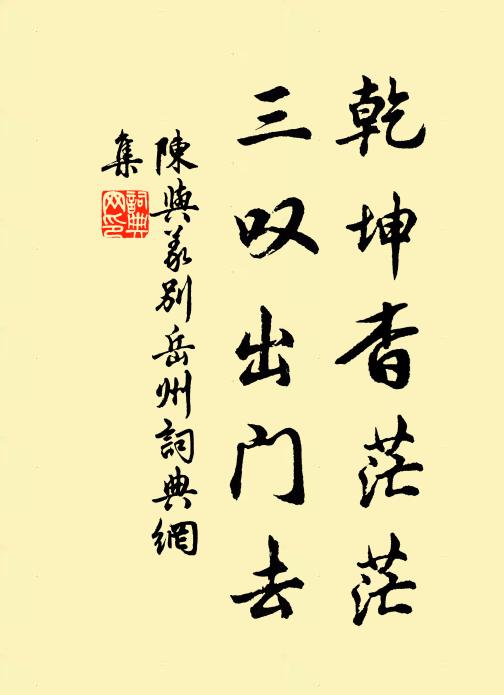 乾坤杳茫茫
三叹出门去
陳與義別岳州詞典網
集
詞典網印